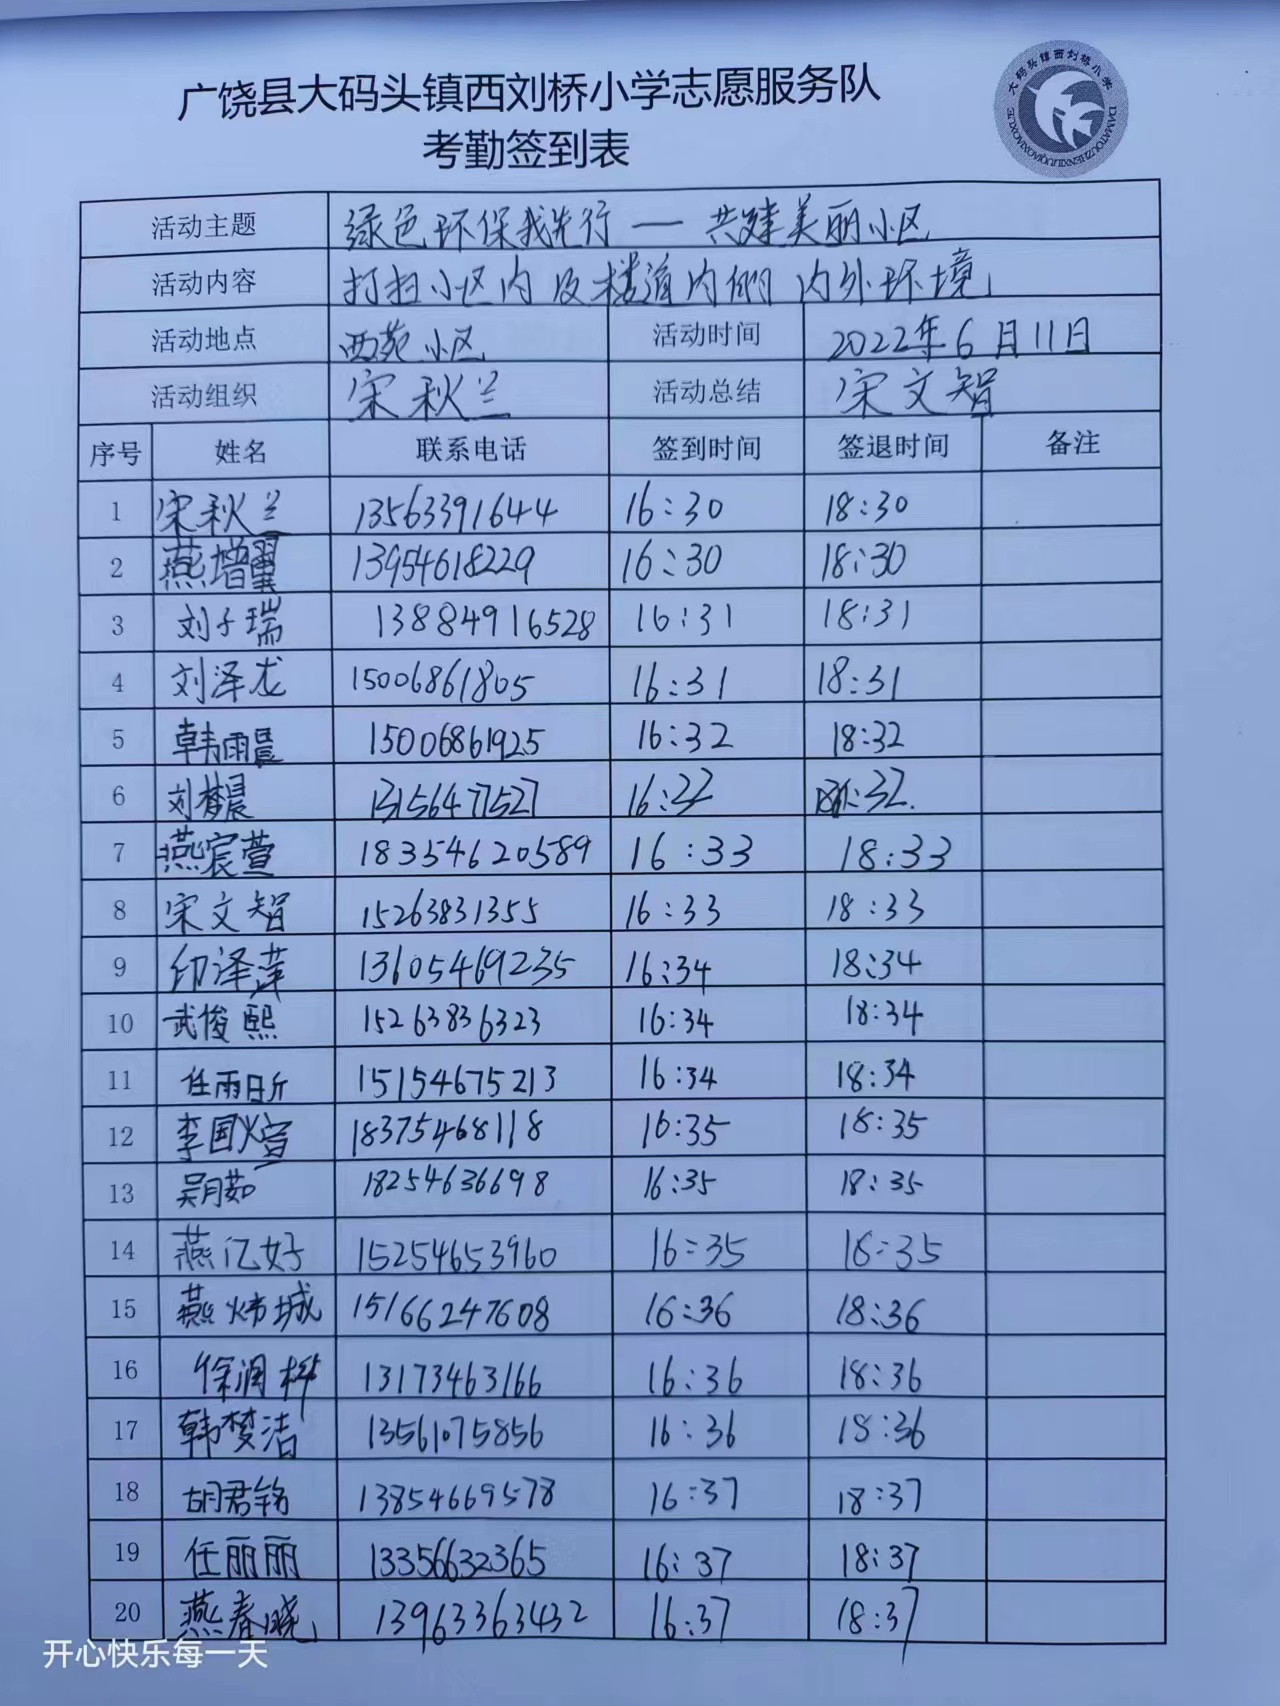 广饶县大码头镇西刘桥小学志愿服务队
考勤签到表
大码头镇西刘桥小学
DAMATOUZHENXILIUQIAOXIAOXUE
活动主题 绿色环保我先行 — 共建美丽小区
活动内容 打扫小区内及楼道内侧 内外环境
活动地点 西苑小区 活动时间 2022年6月11日
活动组织 宋秋兰 活动总结 宋文智
序号 姓名 联系电话 签到时间 签退时间 备注
1 宋秋兰 13563391644 16:30 18:30
2 燕增翼 13954618229 16:30 18:30
3 刘子瑞 13884916528 16:31 18:31
4 刘泽龙 15006861805 16:31 18:31
5 韩雨晨 15006861925 16:32 18:32
6 刘梦晨 13156477527 16:32 18:32
7 燕宸萱 18354620589 16:33 18:33
8 宋文智 15263831355 16:33 18:33
9 印泽萍 13605469235 16:34 18:34
10 武俊熙 15263836323 16:34 18:34
11 任雨昕 15154675213 16:34 18:34
12 李国煊 18375468118 16:35 18:35
13 吴月茹 18254636698 16:35 18:35
14 燕亿好 15254653960 16:35 18:35
15 燕炜城 15166247608 16:36 18:36
16 徐润桦 13173463166 16:36 18:36
17 韩梦洁 13561075856 16:36 18:36
18 胡君铭 13854669578 16:37 18:37
19 任丽丽 13356632365 16:37 18:37
20 燕春晓 13963363432 16:37 18:37
开心快乐每一天